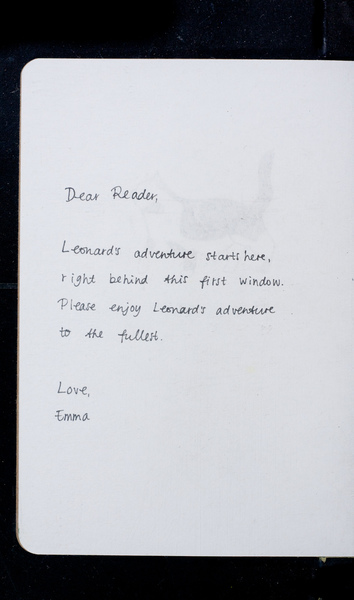 Dear Reader,
Leonard's adventure starts here,
right behind this first window.
Please enjoy Leonard's adventure
to the fullest.
Love,
Emma